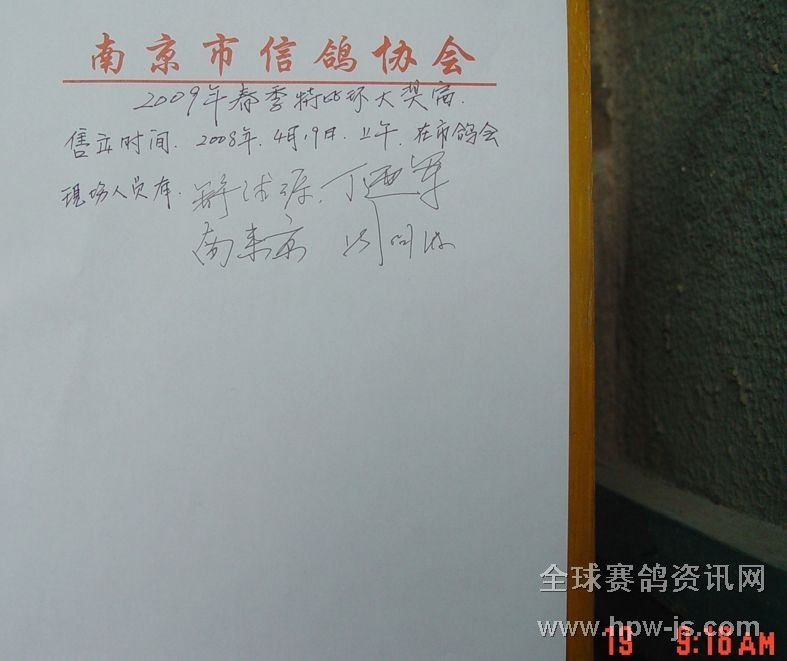 南京市信鸽协会
2009年春季特比环大奖赛.
售环时间. 2008年. 4月19日. 上午. 在市鸽会
现场人员有.
丁 军
南来京
全球赛鸽资讯网
www.hpw-js.com
19 9:18AM